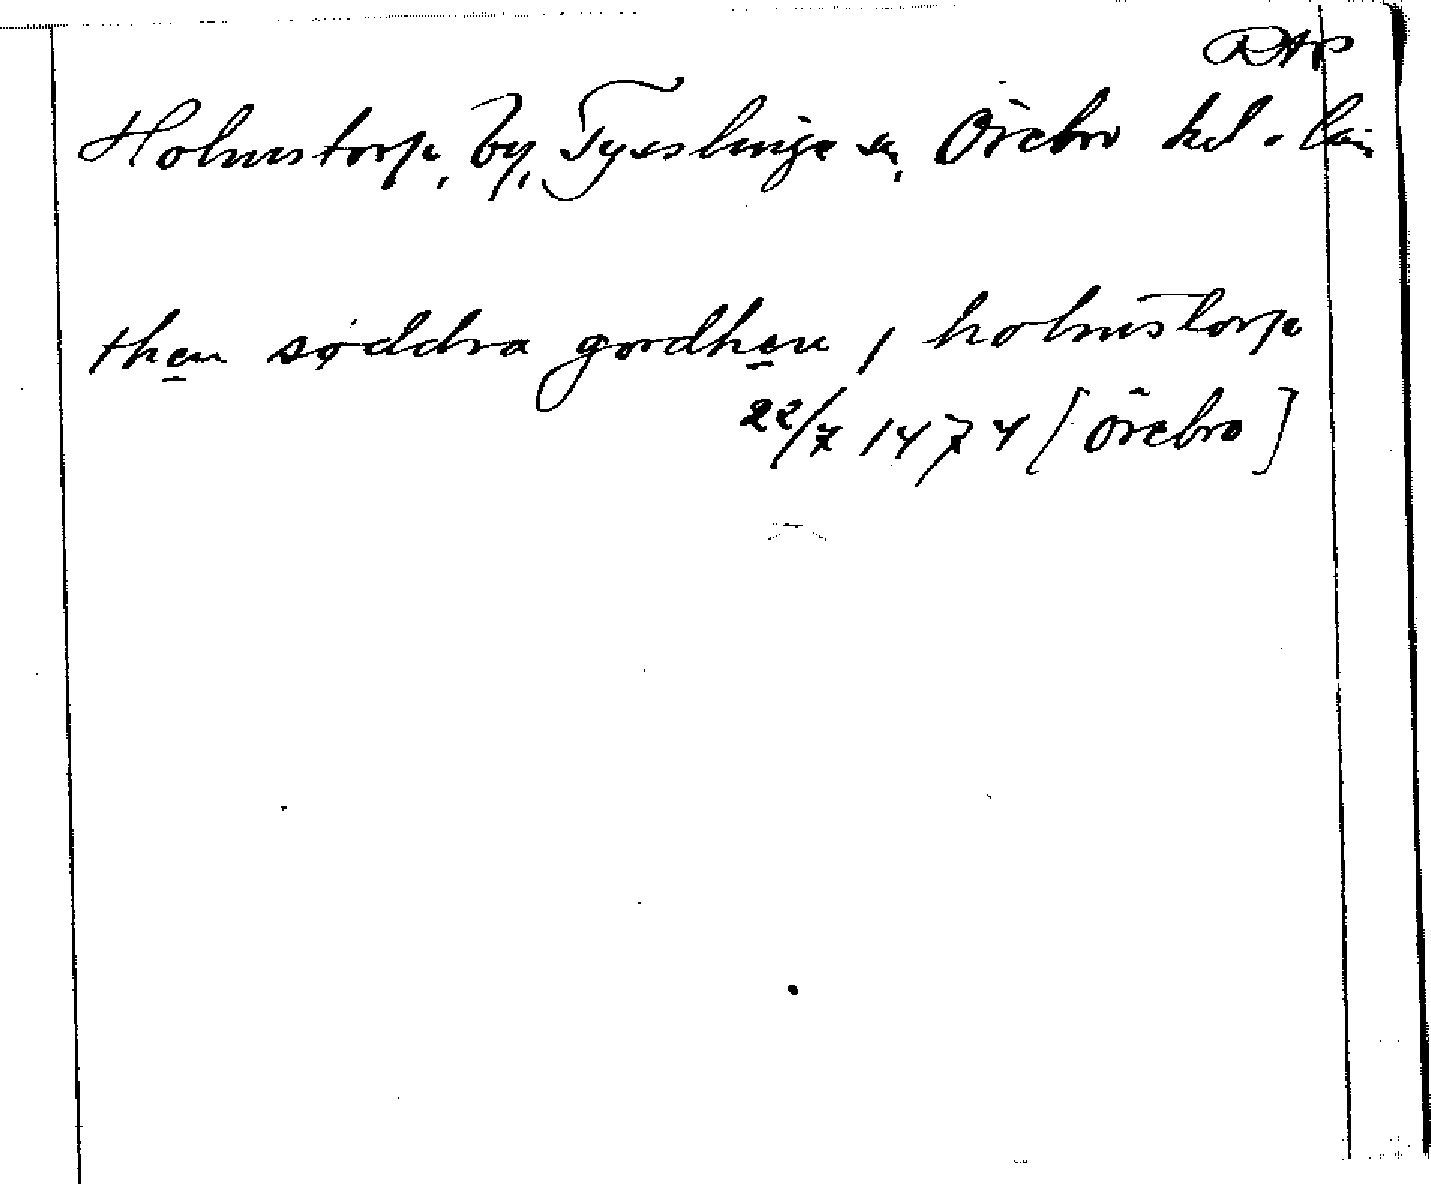 RAP
Holmstorp, by, Tysslinge sn, Örebro hd o. län
then søddra gordhen i holmstorp
22/7 1474 [Örebro]